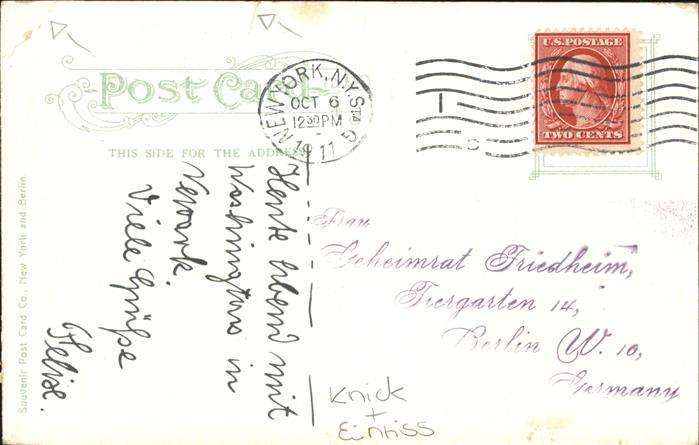 Post Card
THIS SIDE FOR THE ADDRESS
NEW YORK, N.Y. STA
OCT 6
12 30 PM
1911
5
U.S. POSTAGE
TWO CENTS
Heute Abend mit
Washingtons in
Newark.
Viele Grüße
Felix.
Frau
Geheimrat Friedheim,
Tiergarten 14,
Berlin W. 10,
Germany
Knick
+
Einriss
Souvenir Post Card Co., New York and Berlin.